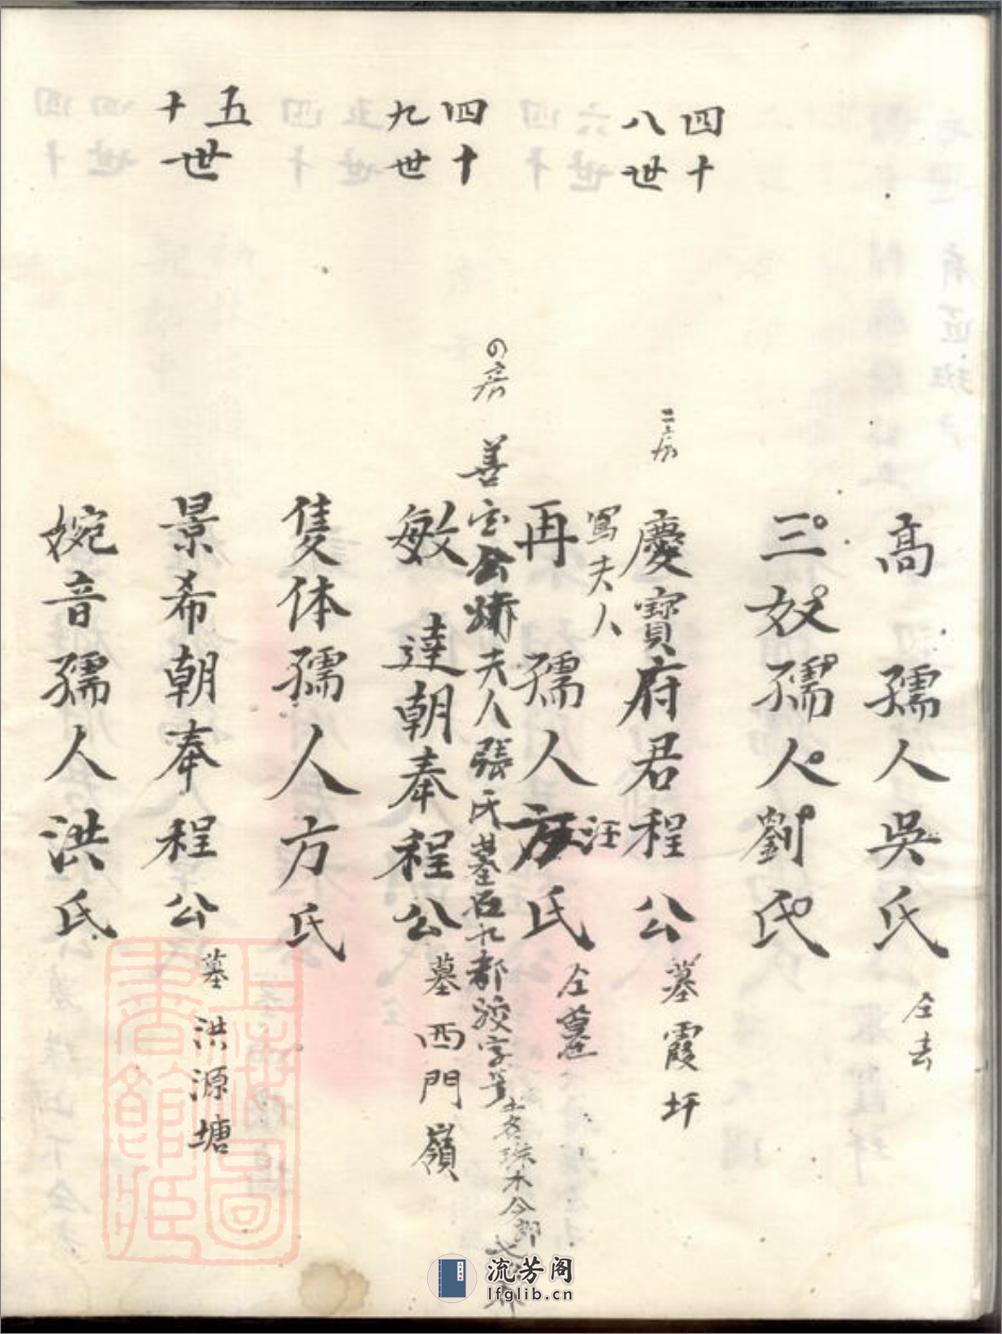 高孺人吳氏 仝去
三奴孺人劉氏
四十八世
二三房 慶寶府君程公 墓霞坪
寫夫人 汪
再孺人方氏 仝墓
の房 善宝公 夫人張氏墓 九都 字号 土名 木公
四十九世
敏達朝奉程公 墓西門嶺
隻体孺人方氏
五十世
景希朝奉程公 墓洪源塘
婉音孺人洪氏
上海圖書館藏
流芳阁
lfglib.cn